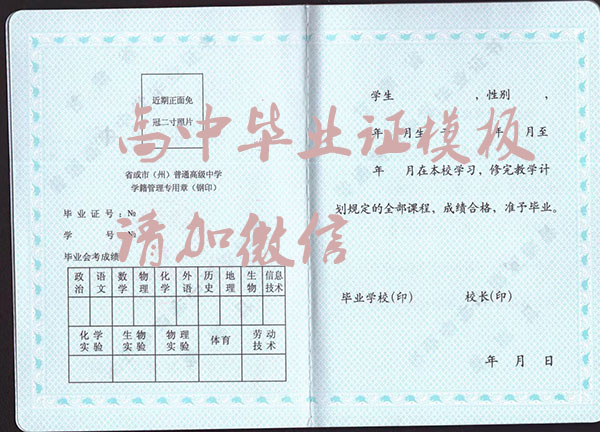 近期正面免
冠二寸照片
省或市（州）普通高级中学
学籍管理专用章（钢印）
毕业证号：№
学 号：№
毕业会考成绩
政治 语文 数学 物理 化学 外语 历史 地理 生物 信息技术
化学实验 生物实验 物理实验 体育 劳动技术
学生 ，性别 ，
年 月生 于 年 月至
年 月在本校学习，修完教学计
划规定的全部课程，成绩合格，准予毕业。
毕业学校(印) 校长(印)
年 月 日
高中毕业证模板
请加微信